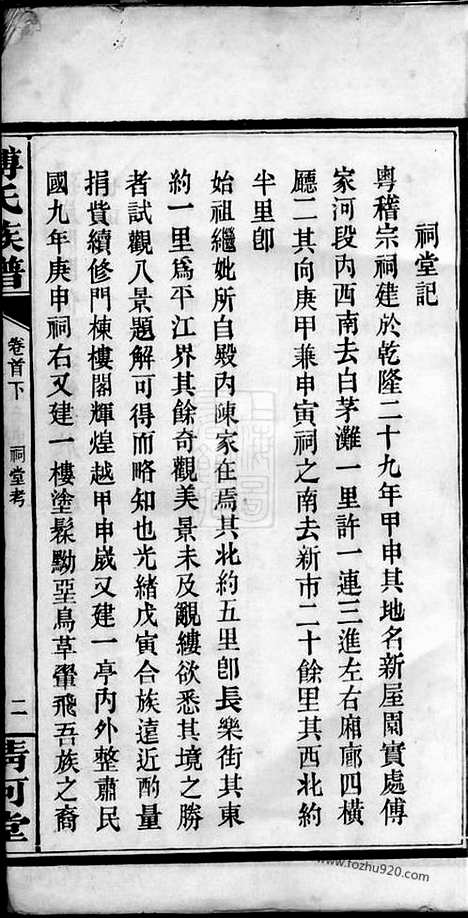 祠堂記
粵稽宗祠建於乾隆二十九年甲申其地名新屋園實處傅
家河段內西南去白茅灘一里許一連三進左右廂廊四橫
廳二其向庚甲兼申寅祠之南去新市二十餘里其西北約
半里卽
始祖繼妣所自殿內陳家在焉其北約五里卽長樂街其東
約一里爲平江界其餘奇觀美景未及覼縷欲悉其境之勝
者試觀八景題解可得而略知也光緒戊寅合族遠近酌量
捐費續修門棟樓閣輝煌越甲申歲又建一亭內外整肅民
國九年庚申祠右又建一樓塗髹黝堊鳥草翬飛吾族之裔
傅氏族譜
卷首下
祠堂考
二
清河堂
www.fozhu920.com